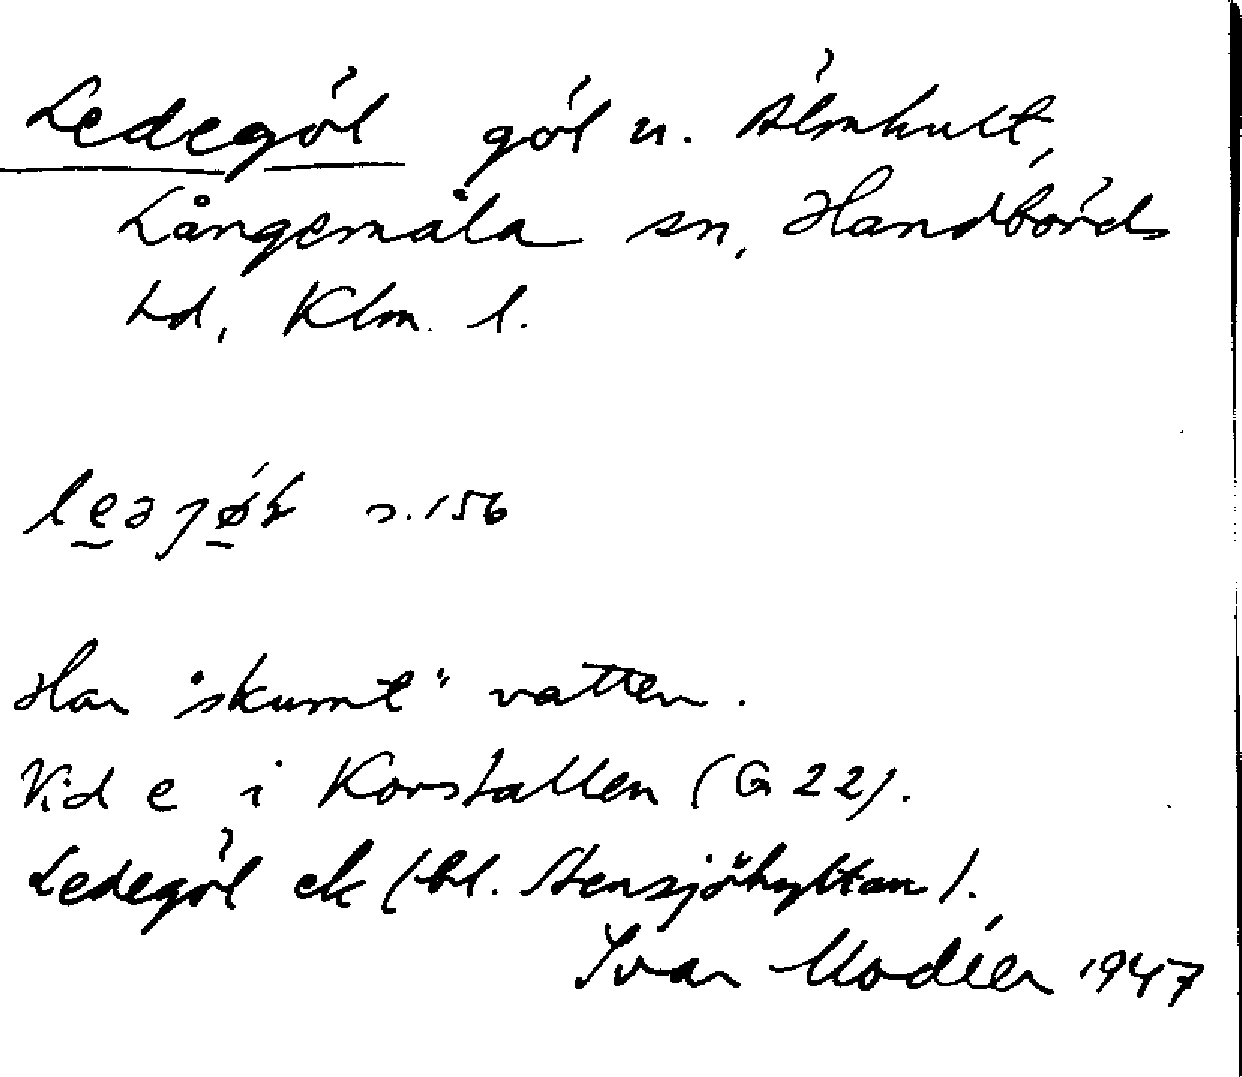 Ledegöl göl n. Älmhult,
Långemåla sn, Handbörds
hd, Klm. l.
s. 156
Har "skumt" vatten.
Vid e i Korstallen (G 22).
Ledegöl ek (bl. Stensjöhyttan).
Ivar Modéer 1947